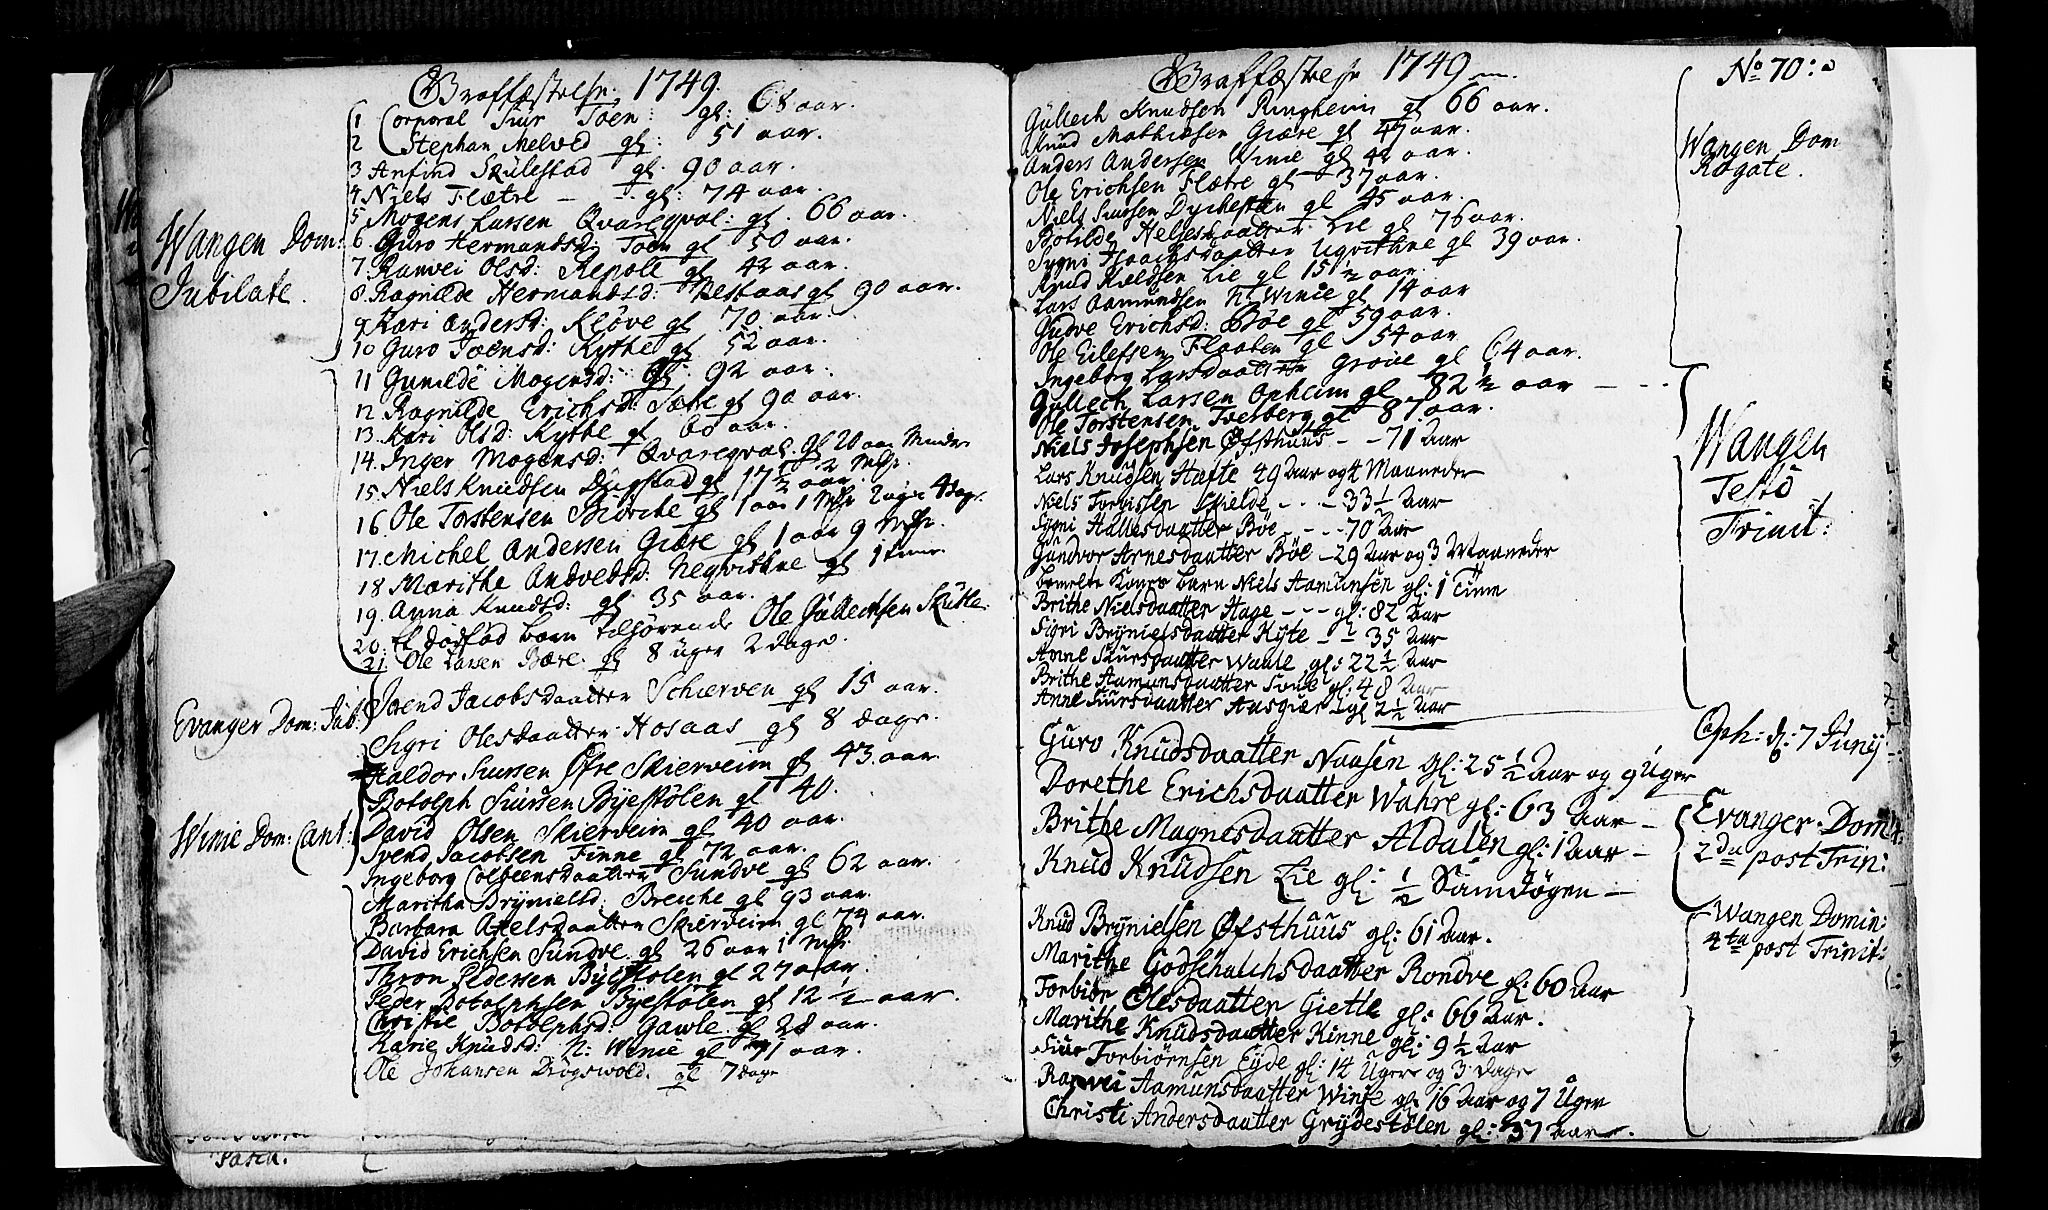 Graffæstelse. 1749.
1 Corporal Siur Toen: gl: 68 aar.
2 Stephan Melved gl: 51 aar.
3 Anfind Skulestad gl. 90 aar.
4 Niels Flætre gl: 74 aar.
5 Mogens Larsen Qvareqval: gl. 66 aar.
Wangen Dom:
Jubilate.
6 Guro Hermandsd: Toen gl 50 aar.
7 Ranvei Olsd: Repole gl 42 aar.
8 Ragnilde Hermandsd: Restaas gl 90 aar.
9 Kari Andersd: Kløve gl 70 aar.
10 Guro Joensd: Kythe gl 52 aar.
11 Gunilde Mogensd: gl: 92 aar.
12 Ragnilde Erichsd: Sætre gl 90 aar.
13 Kari Olsd: Kythe gl 60 aar.
14. Inger Mogensd: Qvareqval. gl 20 aar Mindre 2 Mdr.
15. Niels Knudsen Dugstad gl 17 ½ aar.
16. Ole Torstensen Biørche gl 1 aar 1 Mdr 2 uger 4 dage.
17. Michel Andersen Giære gl 1 aar 9 Mdr.
18 Marithe Andvedsd: Negvithne gl 1 time.
19. Anna Knudsd: gl 35 aar.
20. Et dødfød barn tilhørende Ole Gullechsen Skutle.
21. Ole Larsen Bære. gl 8 uger 2 dage
Evanger Dom: Jub:
Svend Jacobsdaatter Schierven gl 15 aar.
Sygri Olesdaatter Hosaas gl 8 dage.
Winie Dom: Cant:
Haldor Siursen Øfre Skierveim gl 43 aar.
Botolph Siursen Byestølen gl 40.
David Olsen Skierveim gl 40 aar.
Svend Jacobsen Finne gl 72 aar.
Ingeborg Colbeensdaatter Sundve gl 62 aar.
Maritha Brynielsd: Breiche gl 93 aar.
Barbara Axelsdaatter Skierveim gl 74 aar.
David Erichsen Sundve. gl 26 aar 1 Mdr.
Thron Pedersen Byestølen gl 27 aar.
Peder Botolphsen Byestølen gl 12 ½ aar.
Christie Botolphsd: Gawle gl 28 aar.
Karie Knudsd: N: Winie gl 71 aar.
Ole Johansen Digswold. gl 7 dage
Pasch.
Graffæstelse 1749
No 70:
Gullech Knudsen Ringheim gl 66 aar.
Knud Mathiesen Giære gl 47 aar.
Anders Andersen Winie gl 42 aar.
Ole Erichsen Flætre gl 37 aar.
Wangen Dom
Rogate.
Niels Siursen Dychesten gl 45 aar.
Botilde Helgesdaatter Lie gl 76 aar.
Sygni Isaachsdaatter Ugvithne gl 39 aar.
Knud Kieldsen Lie gl 15 ½ aar.
Lars Aamundsen N: Winie gl 14 aar
Gudve Erichsd: Bøe gl 59 aar.
Ole Eilefsen Flaaten gl 54 aar.
Ingeborg Larsdaatter Grove gl 64 aar.
Gullech Larsen Opheim gl 82 ½ aar
Ole Torstensen Tverberg gl 87 aar.
Wangen
Festo
Trinit:
Niels Josephsen Øfsthuus - - 71 Aar
Lars Knudsen Hæfte 49 Aar og 4 Maaneder
Niels Torgilsen Skielde - - - 33 ½ Aar
Sygni Hallesdaatter Bøe - - - 70 Aar
Gundvor Arnesdaatter Bøe - 29 Aar og 3 Maaneder
bemelte Kones barn Niels Aamunsen gl: 1 Time
Brithe Nielsdaatter Hage - - - gl: 82 Aar
Sigri Brynielsdaatter Kyte - - 35 Aar
Anne Siursdaatter Wænle gl: 22 ½ Aar
Brithe Aamunsdaatter Tvile gl: 48 Aar
Anne Siursdaatter Ansgiær gl 2 ½ Aar
Guro Knudsdaatter Naasen gl: 25 ½ Aar og 9 Uger
Cph: d: 7 Junij
Dorethe Erichsdaatter Wahre gl: 63 Aar -
Brithe Magnesdaatter Aldalen gl: 1 Aar -
Knud Knudsen Lie gl: ½ Samdøgen -
Evanger Dom:
2da post Trin:
Knud Brynielsen Øfsthuus gl: 61 Aar.
Marithe Godschalchsdaatter Rondve gl: 60 Aar
Wangen Domin:
4ta post Trinit:
Torbiør Olesdaatter Giette gl: 66 Aar.
Marithe Knudsdaatter Rinne gl: 9 ½ Aar
Siur Torbiørnsen Eyde gl: 14 Uger og 3 Dage
Ranvei Aamunsdaatter Winje gl: 16 Aar og 7 Uger
Christi Andersdaatter Grydestølen gl: 37 Aar.